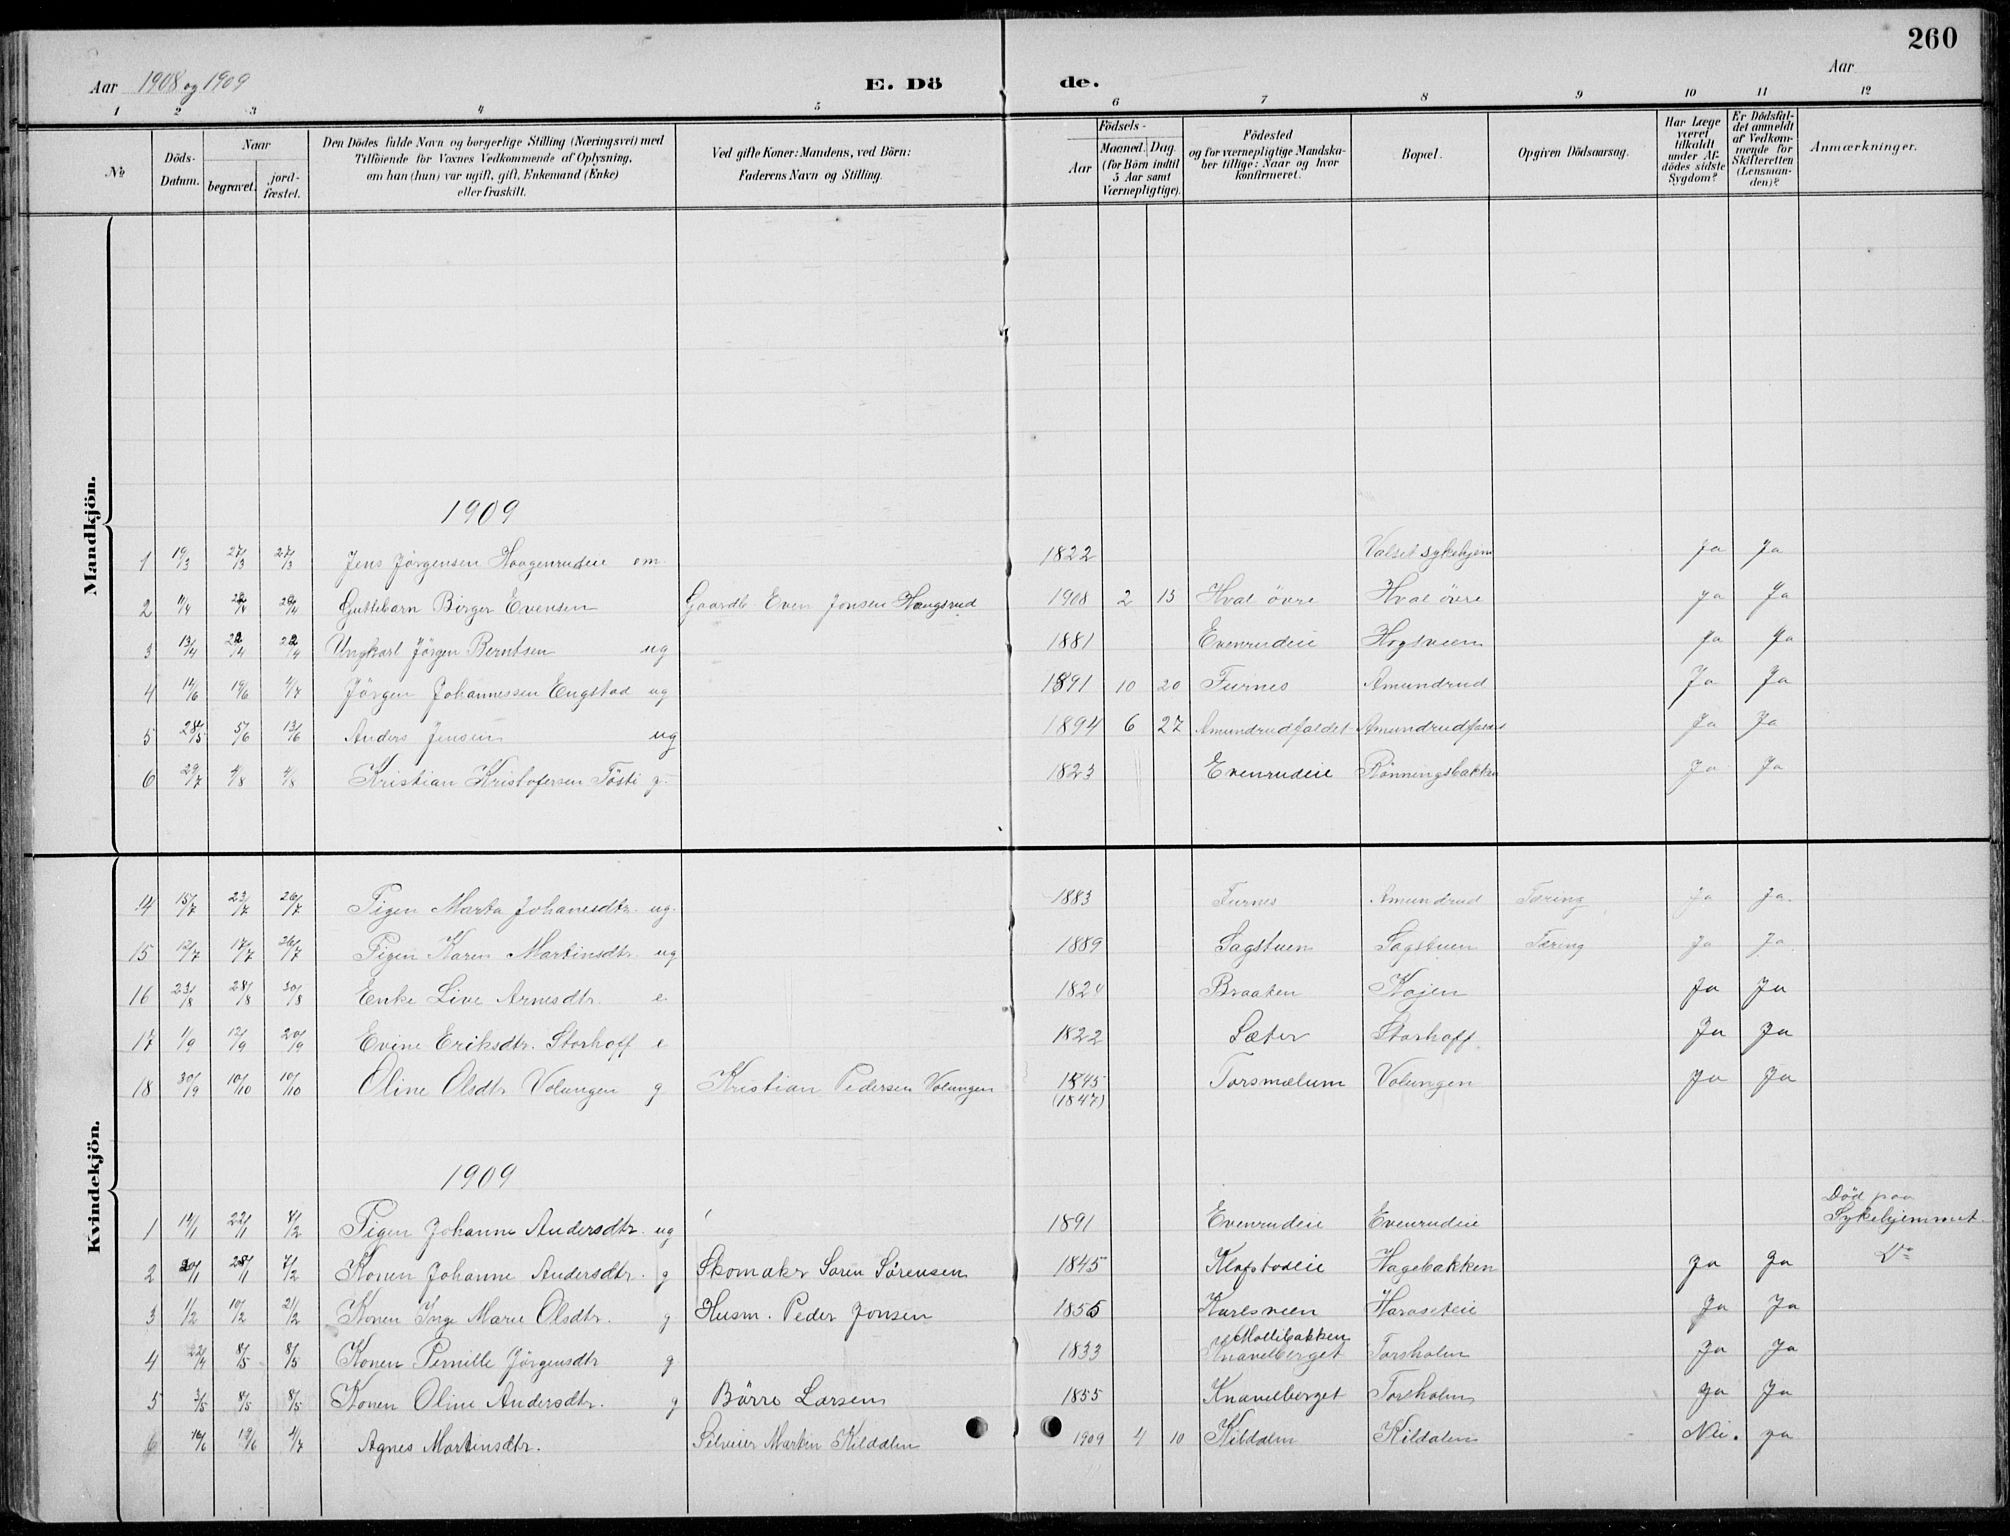 260
Aar 1908 og 1909 E. Dö de. Aar
1 2 3 4 5 6 7 8 9 10 11 12
№ Döds-Datum. Naar begravet. jordfæstet. Den Dödes fulde Navn og borgerlige Stilling (Næringsvei) med Tilföiende for Voxnes Vedkommende af Oplysning, om han (hun) var ugift, gift, Enkemand (Enke) eller fraskilt. Ved gifte Koner: Mandens, ved Börn: Faderens Navn og Stilling. Födsels- Aar Maaned. Dag. (for Börn indtil 5 Aar samt Værnepligtige). Födested og for værnepligtige Mandskaber tillige: Naar og hvor konfirmeret. Bopæl. Opgiven Dödsaarsag. Har Læge været tilkaldt under Afdödes sidste Sygdom? Er Dödsfaldet anmeldt af Vedkommende for Skifteretten (Lensmanden)? Anmærkninger.
Mandkjön.
1909
1 19/3 27/3 27/3 Jens Jørgensen Haagenrudeie em 1822 Valset sykehjem Ja Ja
2 11/4 Guttebarn Birger Evensen Gaardb. Even Jonsen Haugsrud 1908 2 13 Hval övre Hval övre Ja Ja
3 13/4 22/4 22/4 Ungkarl Jörgen Berntsen ug 1881 Evenrudeie Hogsveen Ja Ja
4 14/6 19/6 4/7 Jörgen Johannessen Engstad ug 1891 10 20 Furnes Amundrud Ja Ja
5 28/5 5/6 13/6 Anders Jensen ug 1894 6 27 Amundrudfaldet Amundrudfaldet Ja Ja
6 29/7 4/8 4/8 Kristian Kristofersen Tösti g. 1823 Evenrudeie Rönningsbakken Ja Ja
Kvindekjön.
14 15/7 23/7 26/7 Pigen Marta Johanesdtr. ug. 1883 Furnes Amundrud Tæring Ja Ja.
15 12/7 17/7 26/7 Pigen Karen Martinsdtr. ug 1889 Sagstuen Sagstuen Tæring Ja Ja
16 23/8 28/8 30/8 Enke Live Arnesdtr. e. 1824 Braaten Kojen Ja Ja
17 1/9 12/9 20/9 Evine Eriksdtr. Storhoff e 1822 Sæter Storhoff. Ja Ja
18 30/9 10/10 10/10 Oline Olsdtr Volungen g Kristian Pedersen Volungen 1845 Torsmælum Volungen Ja Ja
(1847)
1909
Död paa
1 14/1 22/1 8/2 Pigen Johanne Andersdtr. ug 1891 Evenrudeie Evenrudeie Sykehjemmet.
2 20/1 28/1 7/2 Konen Johanne Andersdtr. g Skomaker Soren Sörensen 1845 Klofstadeie Hagebakken Ja Ja Do
3 1/2 10/2 21/2 Konen Inge Marie Olsdtr. g Husm. Peder Jonsen 1855 Karlsveen Haraseteie Ja Ja
Mollebakken
4 22/4 8/5 8/5 Konen Pernille Jörgensdtr g 1833 Knavelberget Torsholm Ja Ja
5 3/5 8/5 8/5 Konen Oline Andersdtr. g Börre Larsen 1855 Knavelberget Torsholm Ja Ja
6 10/6 19/6 4/7 Agnes Martinsdtr. Selveier Martin Kildalen 1909 4 10 Kildalen Kildalen Nei. ja